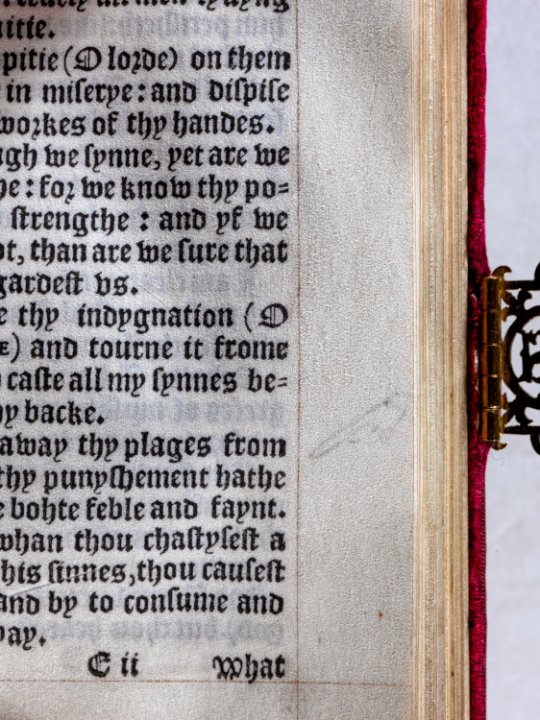 itie.
pitie (O lorde) on them
in miserye: and dispise
workes of thy handes.
ugh we synne, yet are we
ne: for we know thy po=
strengthe : and yf we
ot, than are we sure that
gardest vs.
e thy indygnation (O
E) and tourne it frome
caste all my synnes be=
hy backe.
away thy plages from
thy punyshement hathe
e bohte feble and faynt.
whan thou chastysest a
his sinnes, thou causest
and by to consume and
way.
E ii What